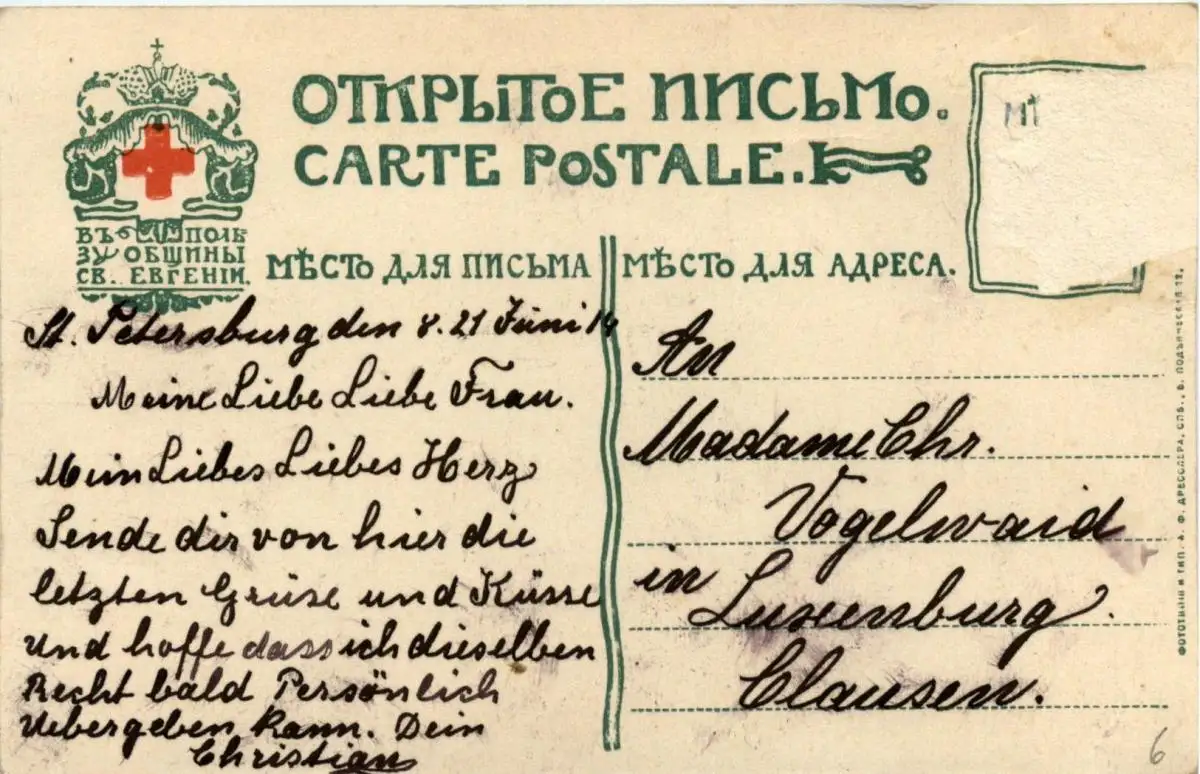 ОТКРЫТОЕ ПИСЬМО.
CARTE POSTALE.
ВЪ ПОЛЬ
ЗУ ОБЩИНЫ
СВ. ЕВГЕНІИ.
МѢСТО ДЛЯ ПИСЬМА
МѢСТО ДЛЯ АДРЕСА.
St. Petersburg den 8.21 Juni 14
Meine Liebe Liebe Frau.
Mein Liebes Liebes Herz
Sende dir von hier die
letzten Grüse und Küsse
und hoffe dass ich dieselben
Recht bald Persönlich
Uebergeben kann. Dein
Christian
An
Madame Chr.
Vogelwaid
in
Luxenburg.
Clausen.
ФОТОТИПІЯ И ТИП. А. Ф. ДРЕССЛЕРА, СПБ., Б. ПОДЪЯЧЕСКАЯ
6